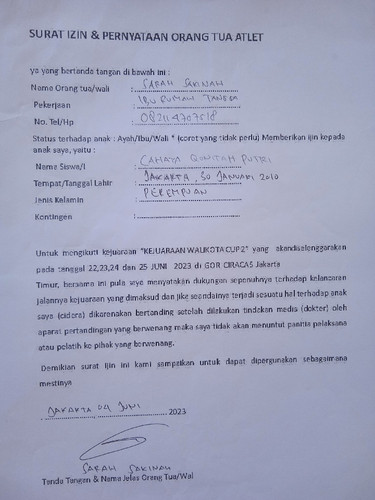 SURAT IZIN & PERNYATAAN ORANG TUA ATLET
yg yang bertanda tangan di bawah ini :
Nama Orang tua/wali : SARAH SAKINAH
Pekerjaan : IBU RUMAH TANGGA
No. Tel/Hp :
Status terhadap anak : Ayah/Ibu/Wali * (coret yang tidak perlu) Memberikan ijin kepada
anak saya, yaitu :
Nama Siswa/i : CAHAYA QONITAH PUTRI
Tempat/Tanggal Lahir : JAKARTA, 30 JANUARI 2010
Jenis Kelamin : PEREMPUAN
Kontingen :
Untuk mengikuti kejuaraan "KEJUARAAN WALIKOTA CUP 2" yang akandiselenggarakan
pada tanggal 22,23,24 dan 25 JUNI 2023 di GOR CIRACAS Jakarta
Timur, bersama ini pula saya menyatakan dukungan sepenuhnya terhadap kelancaran
jalannya kejuaraan yang dimaksud dan jika seandainya terjadi sesuatu hal terhadap anak
saya (cidera) dikarenakan bertanding setelah dilakukan tindakan media (dokter) oleh
aparat pertandingan yang berwenang maka saya tidak akan menuntut panitia pelaksana
atau pelatih ke pihak yang berwenang.
Demikian surat ijin ini kami sampaikan untuk dapat dipergunakan sebagaimana
mestinya
JAKARTA 04 JUNI 2023
SARAH SAKINAH
Tanda Tangan & Nama Jelas Orang Tua/Wal